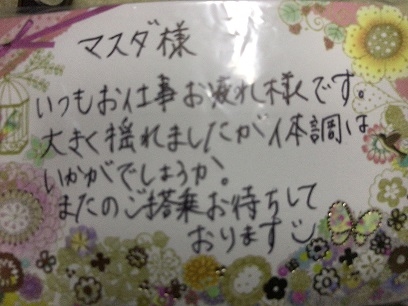 マスダ様
いつもお仕事お疲れ様です。
大きく揺れましたが体調は
いかがでしょうか。
またのご搭乗お待ちして
おります